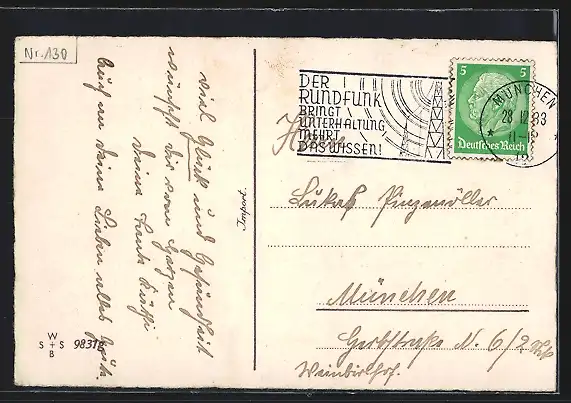 Nr. 130
Viel Glück und Gesundheit
wünscht dir von Herzen
deine
Auch an deine Lieben alles Gute.
Import.
W
S + S
B
9831g
DER
RUNDFUNK
BRINGT
UNTERHALTUNG
MEHRT
DAS WISSEN!
5 5
Deutsches Reich
MÜNCHEN
28.12.33
Herrn
Lukas Pinzenöller
München
Gerbstraße N. 6/2
Weinbirlhof.